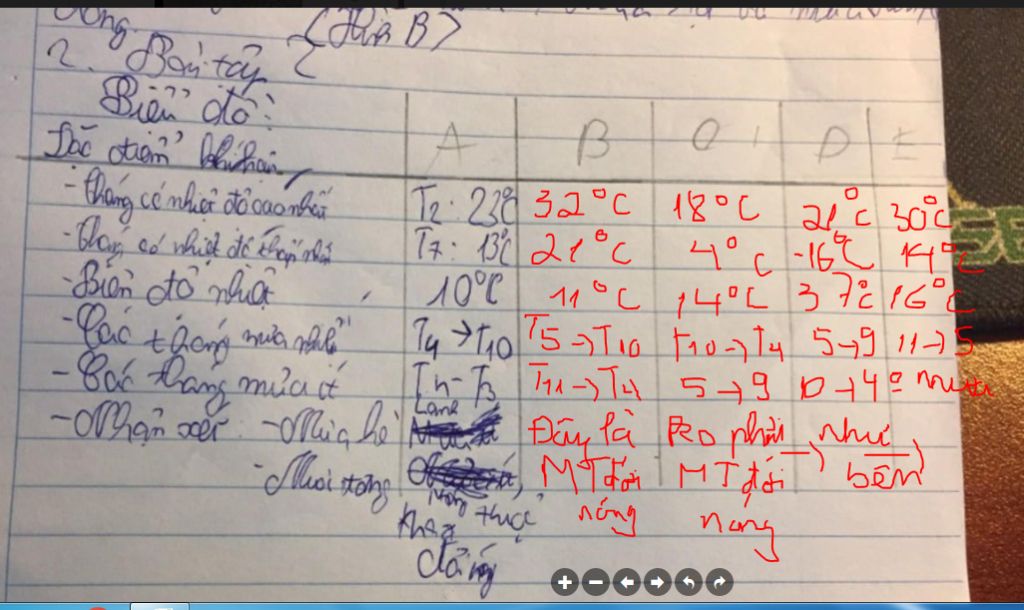 (Hết B)
2. Bài tập
Biểu đồ:
Đặc điểm khí hậu A B C D E
- tháng có nhiệt độ cao nhất T2: 23°C 32°C 18°C 21°C 30°C
- tháng có nhiệt độ thấp nhất T7: 13°C 21°C 4°C -16°C 14°C
- Biên độ nhiệt 10°C 11°C 14°C 37°C 16°C
- Các tháng mưa nhiều T4→T10 T5→T10 T10→T4 5→9 11→5
- Các tháng mưa ít T11-T3 T11→T4 5→9 10→4 0 mưa
- Nhận xét: - Mùa hè Đây là ko phải → như →
- Môi trường MT đới MT đới bên
nóng nóng
thực